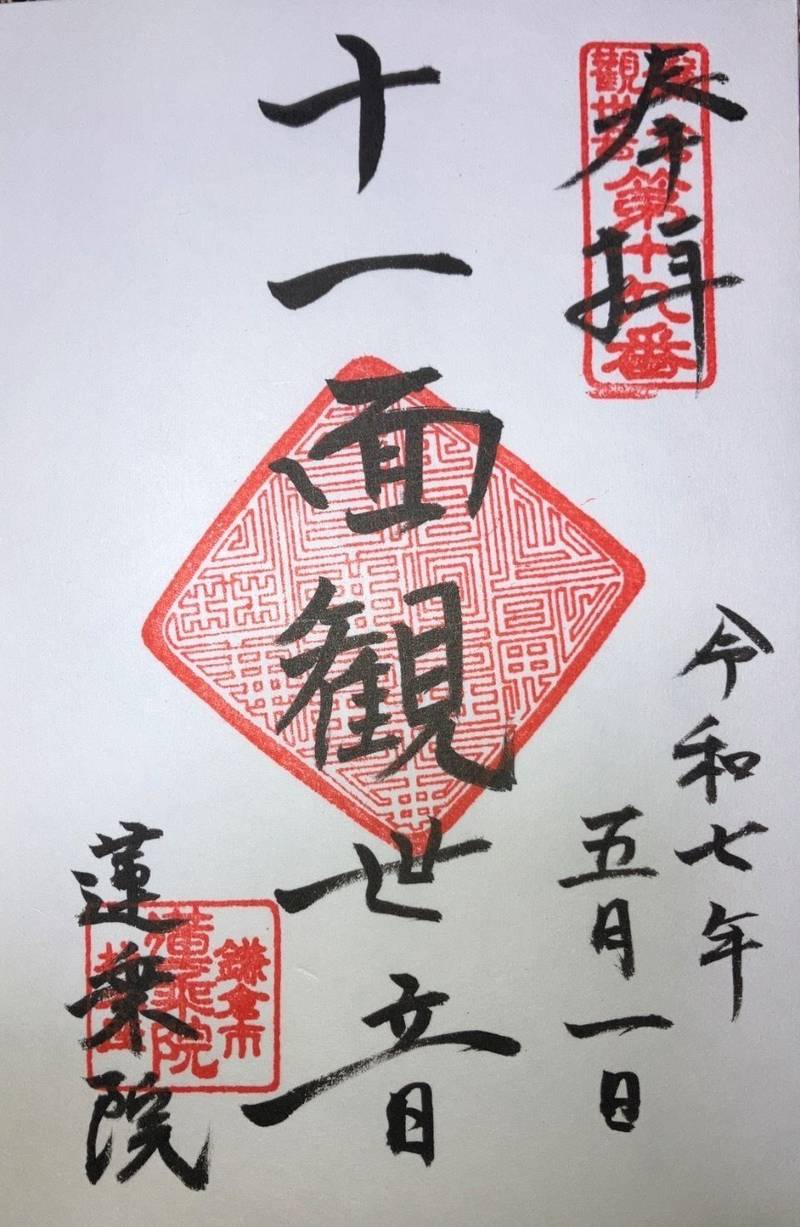 奉拝
第十九番
令和七年
五月一日
十一面観世音
蓮乗院
鎌倉市
蓮乗院